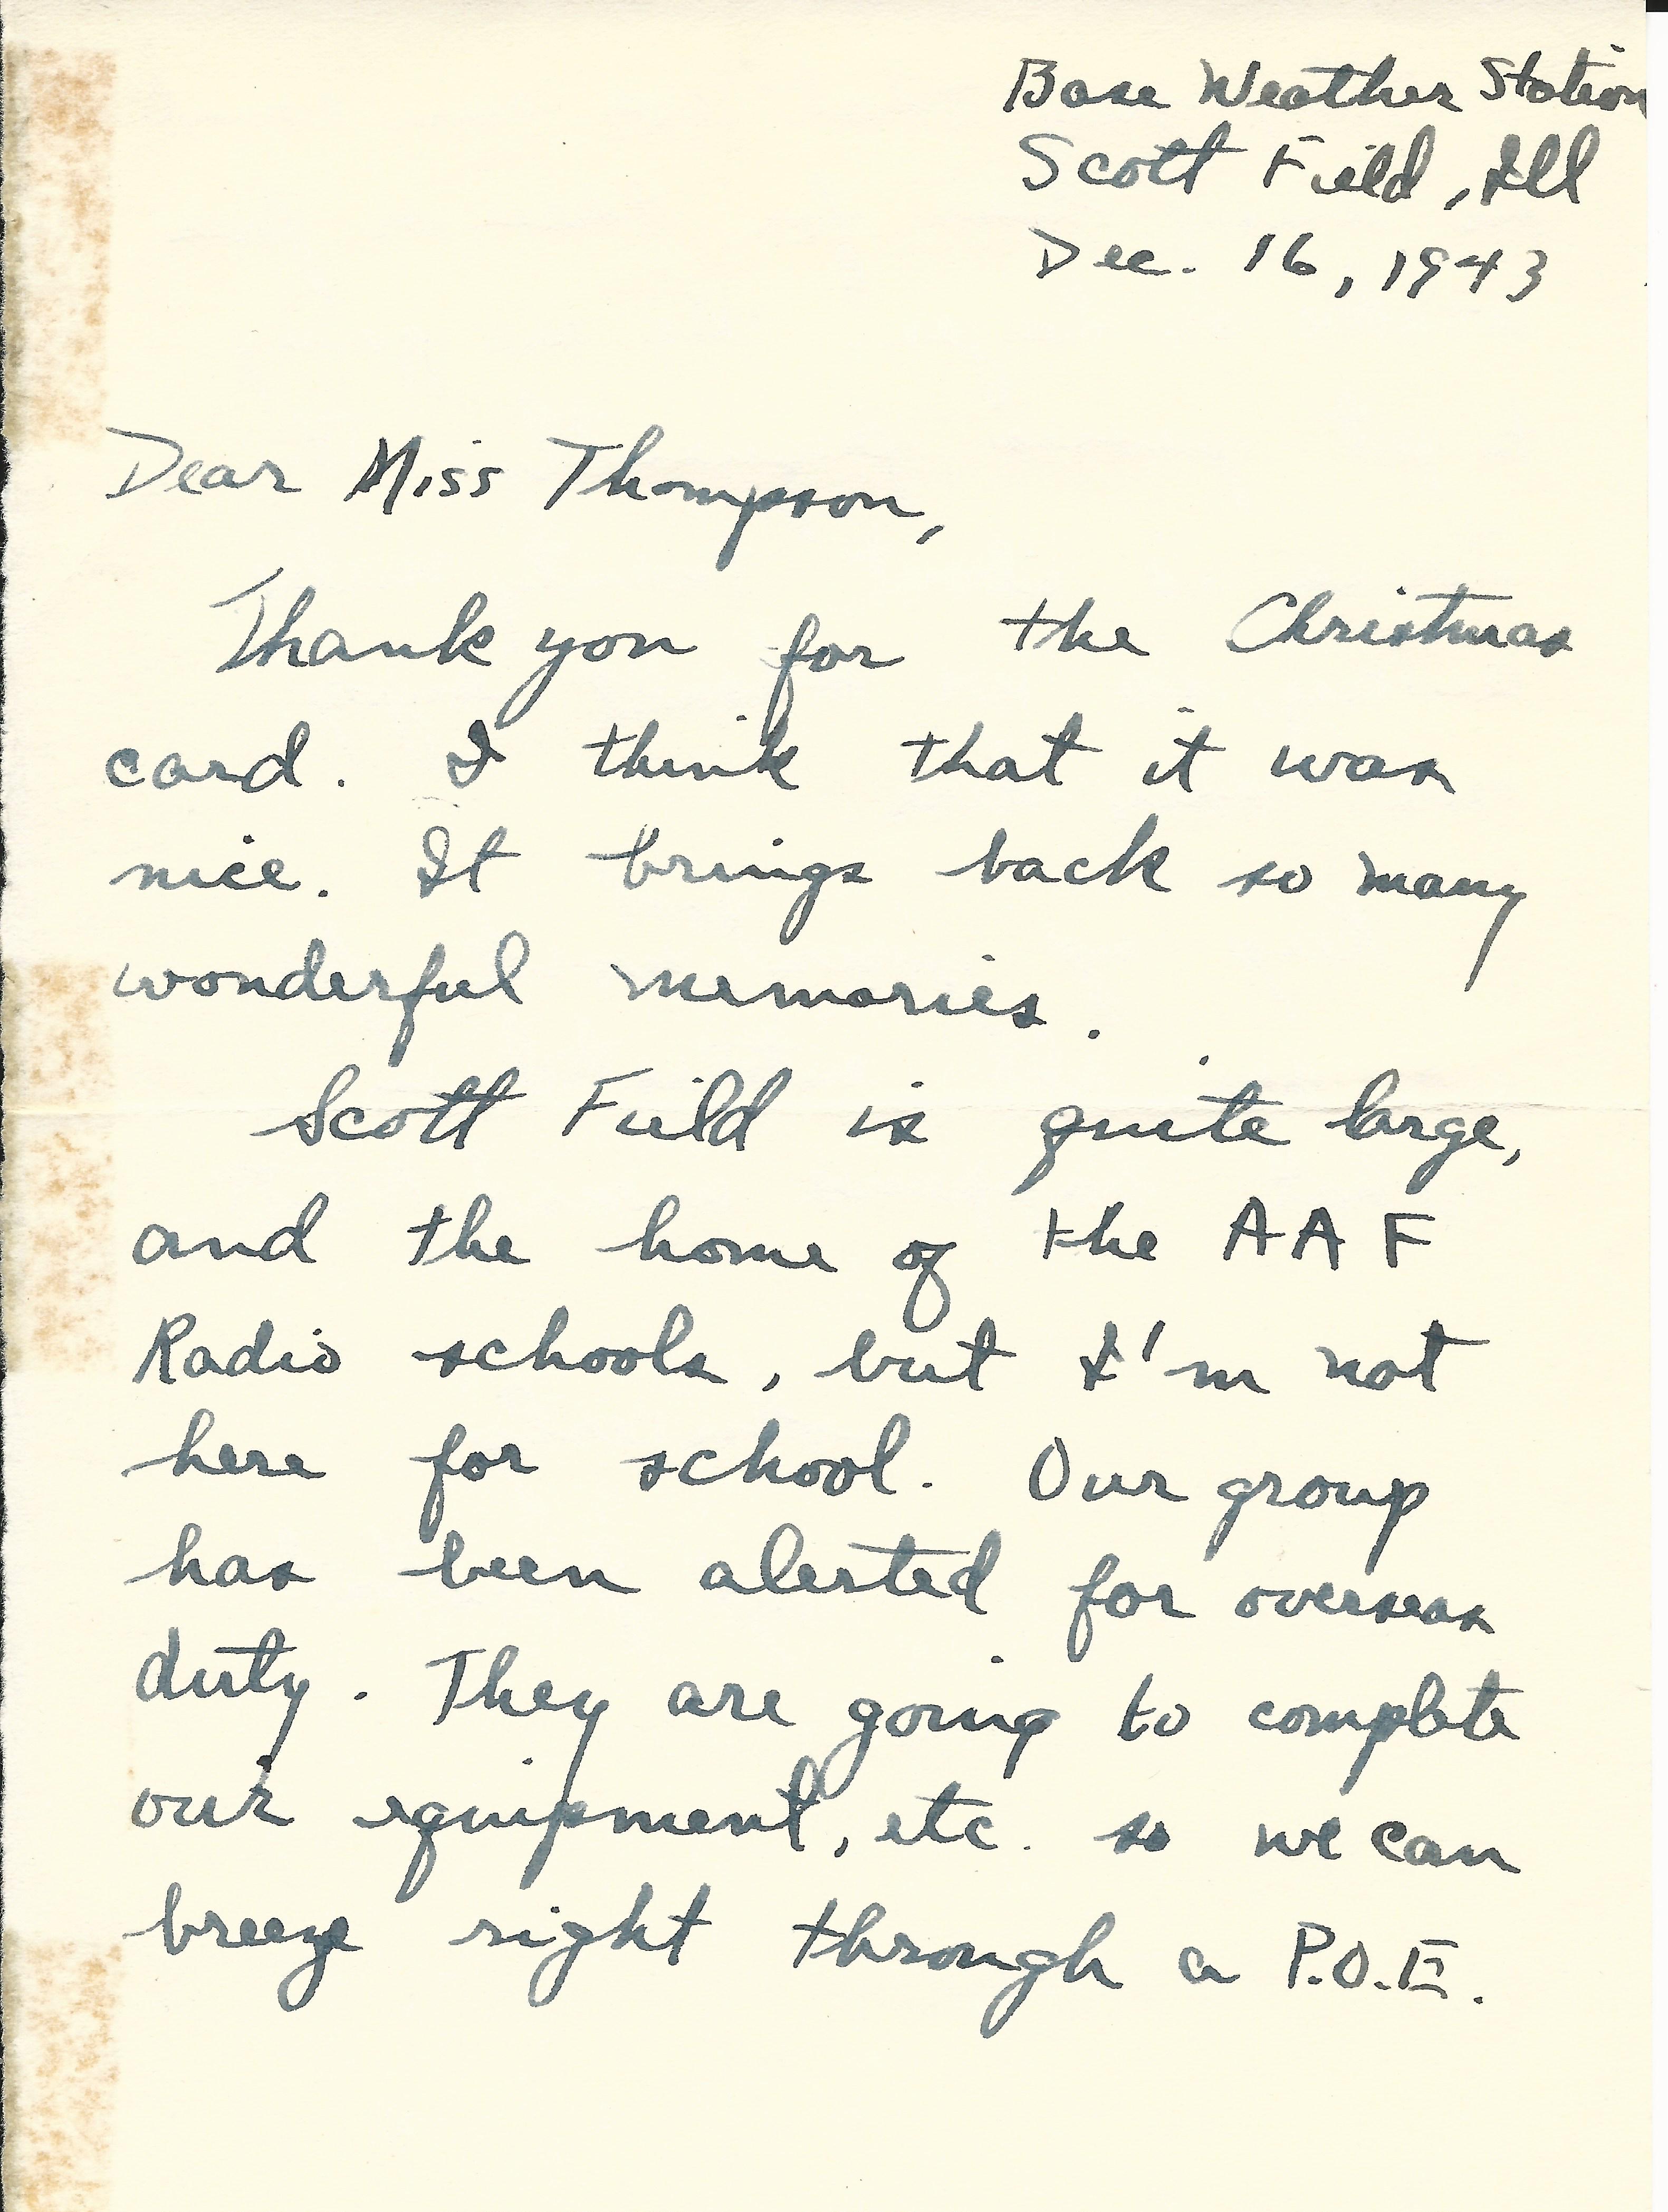 Base Weather Station
Scott Field, Ill
Dec. 16, 1943
Dear Miss Thompson,
Thank you for the Christmas
card. I think that it was
nice. It brings back so many
wonderful memories.
Scott Field is quite large,
and the home of the AAF
Radio schools, but I'm not
here for school. Our group
has been alerted for overseas
duty. They are going to complete
our equipment, etc. so we can
breeze right through a P.O.E.